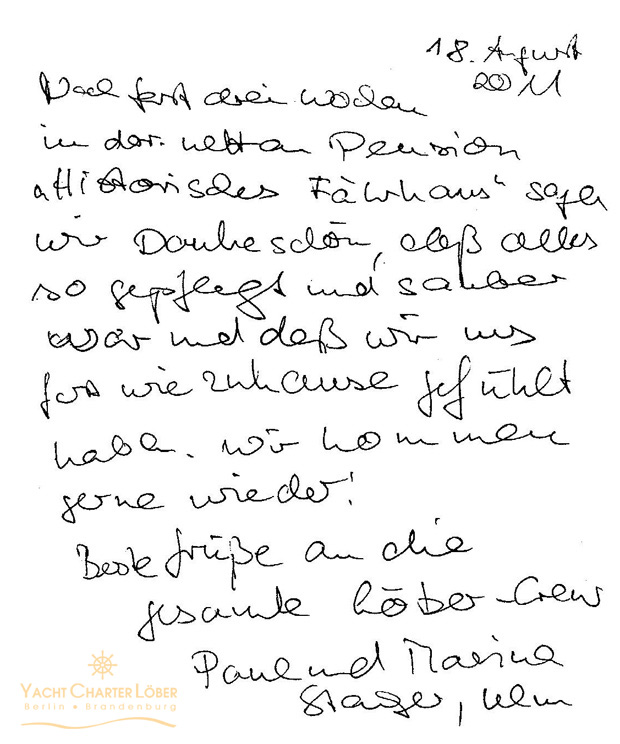 18. August
2011
Nach fast drei Wochen
in der netten Pension
„Historisches Fährhaus" sagen
wir Dankeschön, daß alles
so gepflegt und sauber
war und daß wir uns
fast wie zuhause gefühlt
haben. Wir kommen
gerne wieder!
Beste Grüße an die
gesamte Löber-Crew
Paul und Marina
Ulm
YACHT CHARTER LÖBER
Berlin • Brandenburg